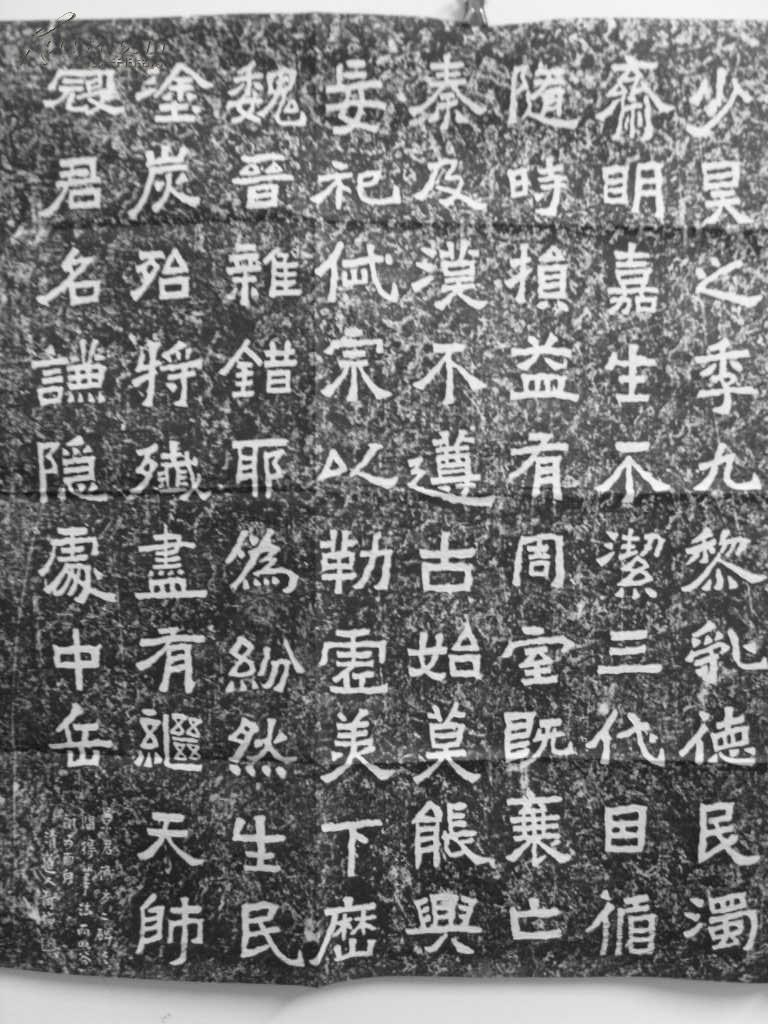 少昊之季九黎乱德民濁
齋明嘉生不潔三代因循
隨時損益有周室既衰亡
秦及漢不遵古始莫能興
妄祀貳宗以勒虛美下歷
魏晉雜錯耶為紛然生民
塗炭殆將殲盡有繼天師
寇君名謙隐處中岳